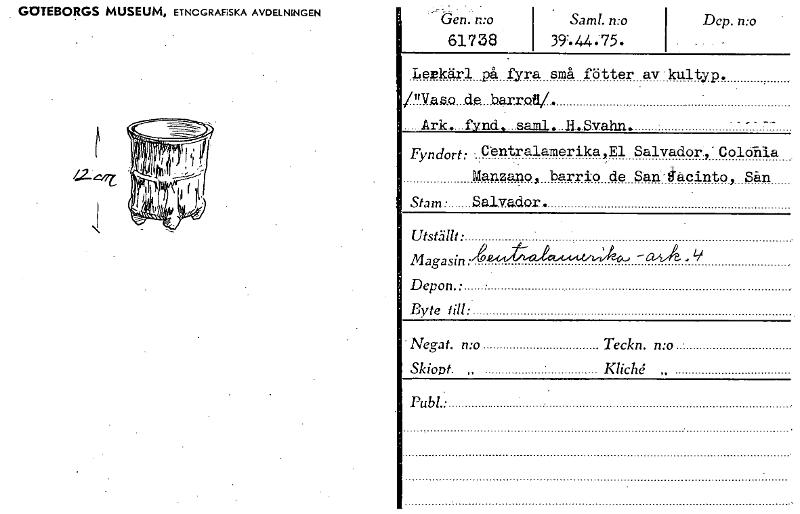 GÖTEBORGS MUSEUM, ETNOGRAFISKA AVDELNINGEN
12 cm
Gen. n:o Saml. n:o Dep. n:o
61738 39.44.75.
Lerkärl på fyra små fötter av kultyp.
/"Vaso de barro"/.
Ark. fynd, saml. H.Svahn.
Fyndort: Centralamerika,El Salvador, Colonia
Manzano, barrio de San Jacinto, San
Stam: Salvador.
Utställt:
Magasin: Centralamerika - ark. 4
Depon.:
Byte till:
Negat. n:o Teckn. n:o
Skiopt. „ Kliché „
Publ.: